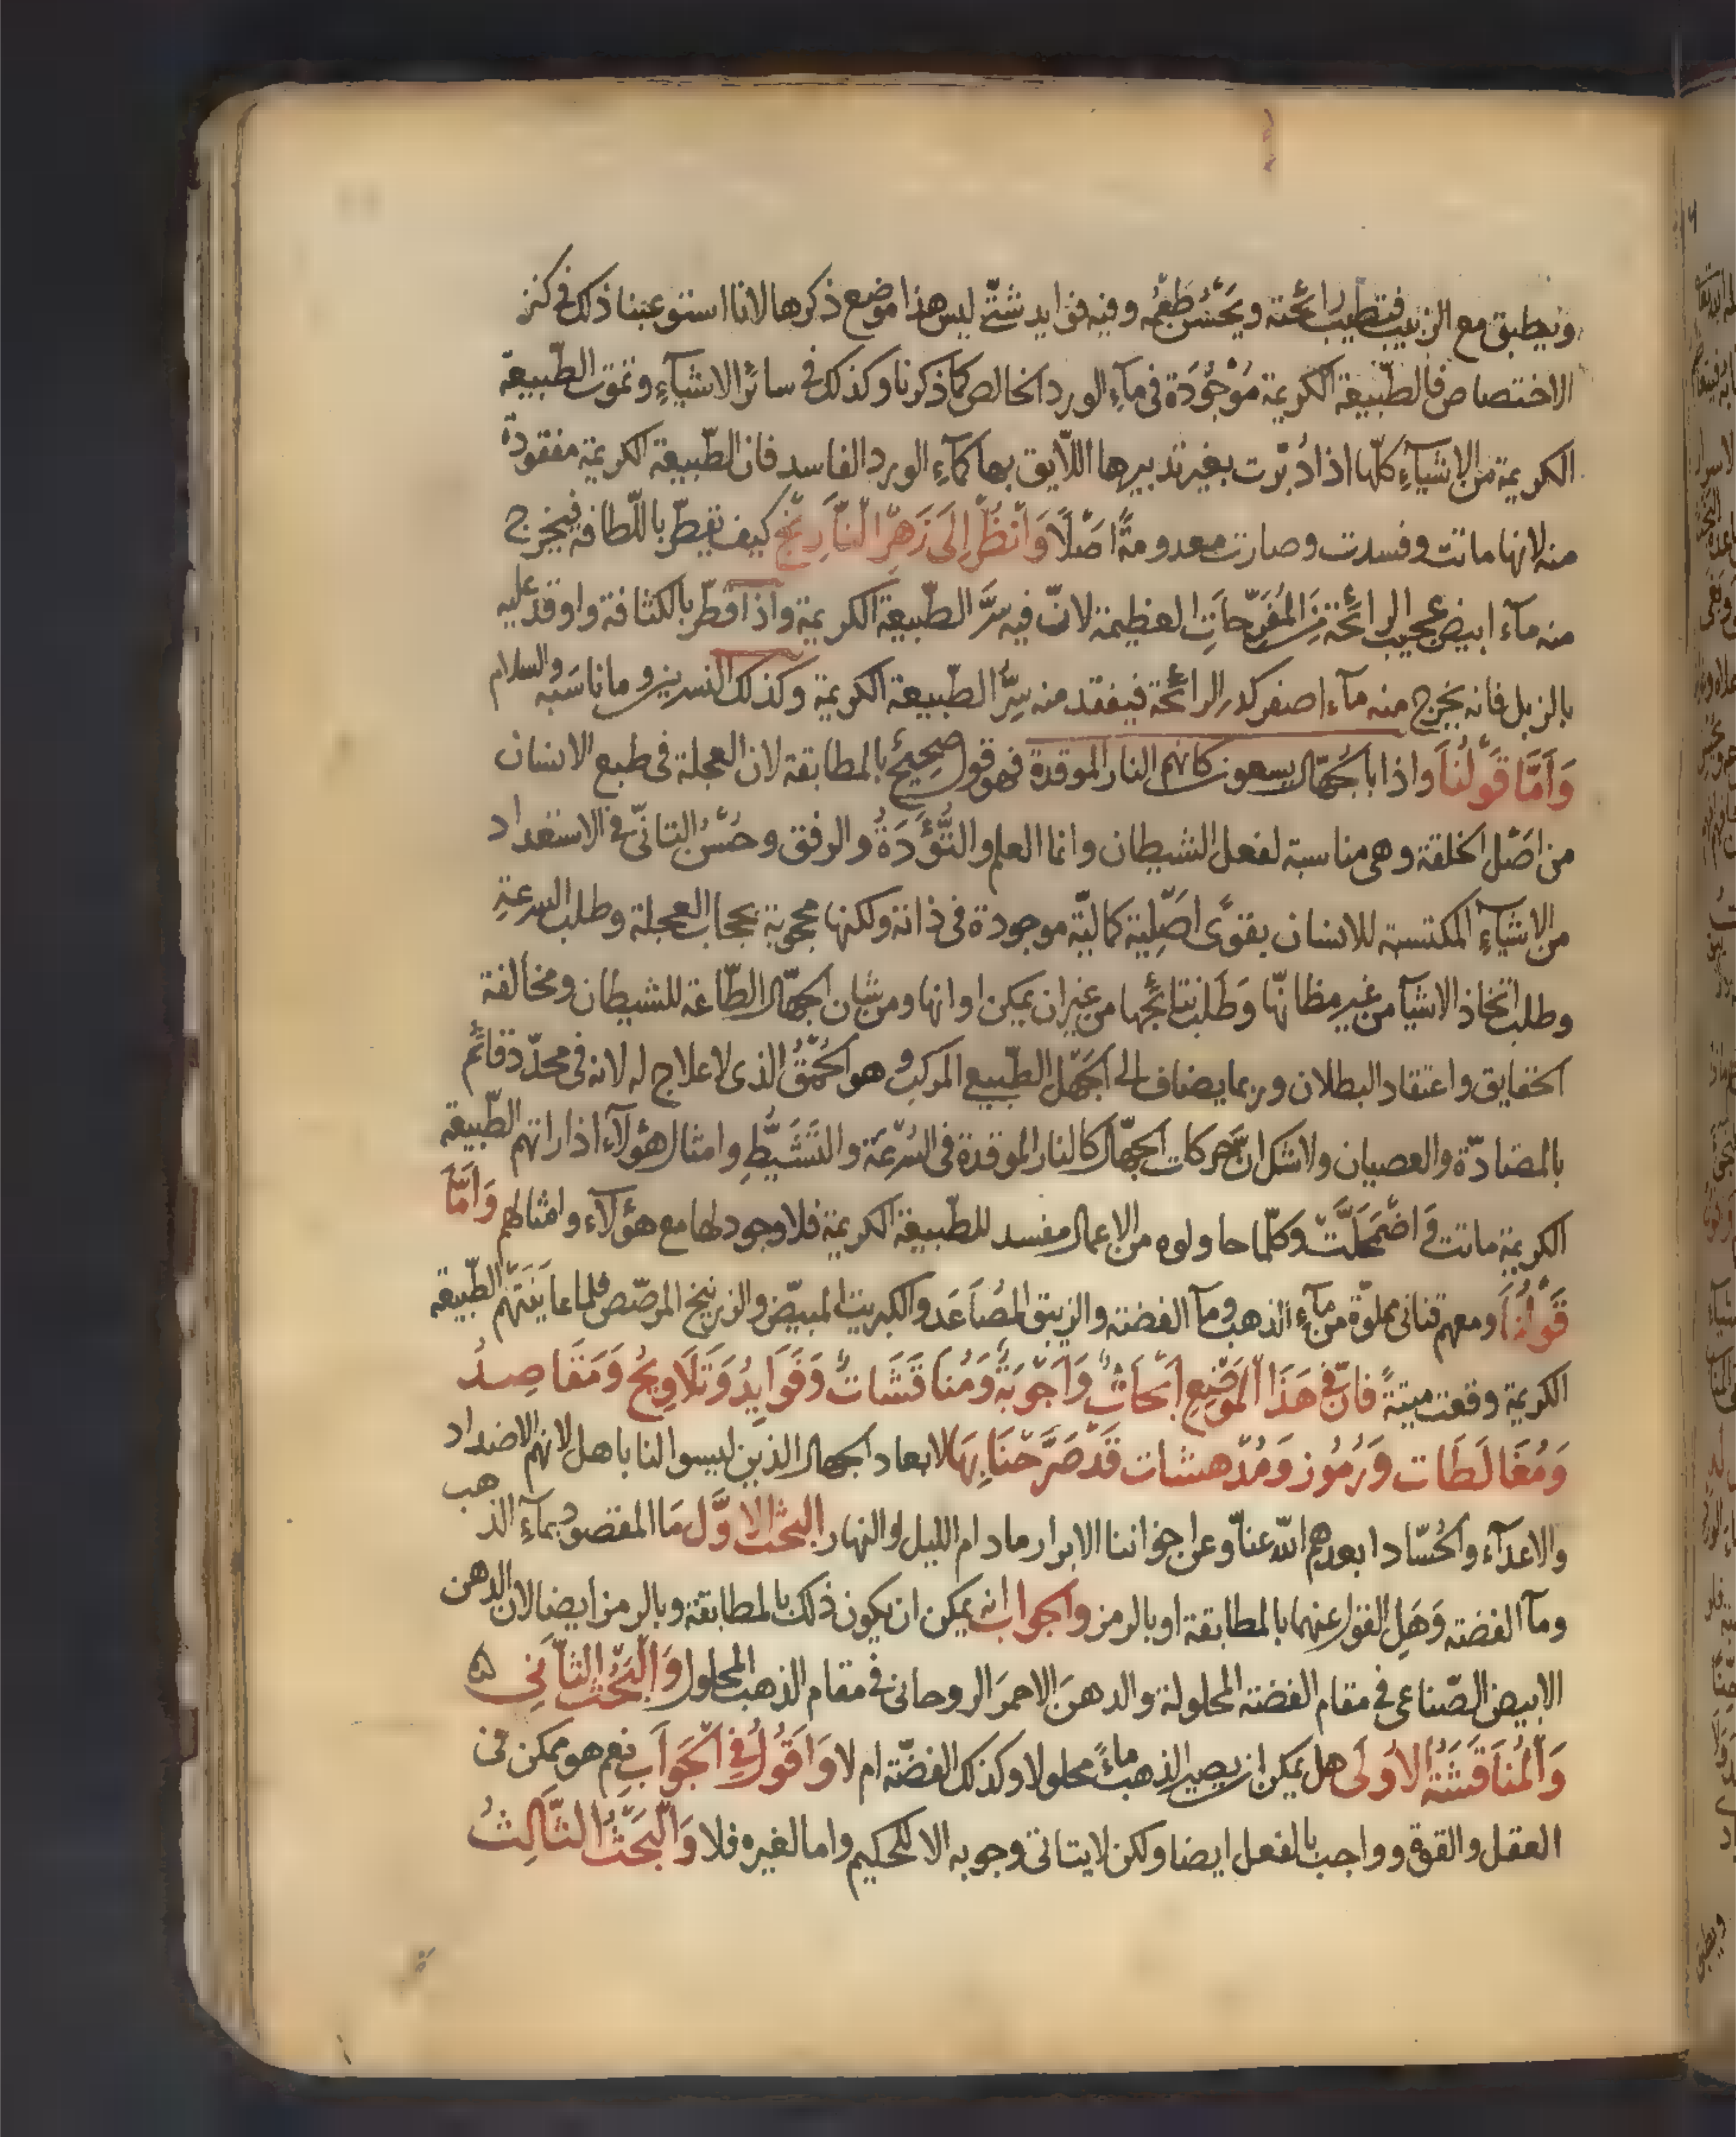 ويطبق مع الزبيب فتطيب رائحته ويحسن طعمه وفيه فوايد شتى ليس هذا موضع ذكرها لانا استوعبنا ذلك في كنز
الاختصاص فالطبيعة الكريمة موجودة في مآء الورد الخالص كما ذكرنا وكذلك في سائر الاشيآء وتموت الطبيعة
الكريمة من الاشيآء كلها اذا دُبرت بغير تدبيرها اللايق بها كمآء الورد الفاسد فان الطبيعة الكريمة مفقودة
منه لانها ماتت وفسدت وصارت معدومةً اصلًا وَانْظُرْ اِلَى زَهرِ النَّارِنْجِ كيف يقطر باللطافه فيخرج
منه مآء ابيض عجيب الرائحة من المُفَرِّحَاتِ العظيمة لانّ فيه سرَّ الطبيعة الكريمة واذا قطر بالكثافة واوقد عليه
بالزبل فانه يخرج منه مآء اصفر كدر الرائحة فيفقد منه سِرُّ الطبيعة الكريمة وكذلك النسرين وما ناسَبه والسلام
وَاَمَّا قَوْلُنَا واذا بالجهّال يسعون كانهم النار الموقدة فهو قول صحيحٌ بالمطابقة لان العجلة في طبع الانسان
من اصْل الخلقة وهي مناسبة لفعل الشيطان وانما العلم والتُّؤَدَةُ والرفق وحُسْنُ التانّي في الاستعداد
من الاشيآءِ المكتسبة للانسان بقوًى اصْلِية كماليّة موجودة في ذاته ولكنها محجوبة بحجاب العجلة وطلب السرعة
وطلب اتخاذ الاشيآ من غير مظانّها وَطَلَب نتائجها من غير ان يمكن اوانها ومن شان الجهّال الطاعة للشيطان ومخالفة
الحقايق واعتقاد البطلان وربما يضاف الى الجَهْل الطبيعي المركب وهو الحُمْقُ الذى لا علاج له لانه في محدّد قائم
بالمضادّة والعصيان ولا شك انّ حركات الجهّال كالنار الموقدة فى السُّرْعَة والتَشَيُّطِ وامثال هؤلآء اذا راتهم الطبيعة
الكريمة ماتت وَاضْمَحَلَّتْ وكلّما حاولوه من الاعمال مفسد للطبيعة الكريمة فلا وجود لها مع هؤلآء وامثالهم وَاَمَّا
قَوْلُنَا ومعهم قنانى مملوّة من مآءِ الذهب ومآ الفضة والزيبق المُصَاعَد والكبريت المبيّض والزرنيخ المرصّص فلما عايَنَتهم الطبيعة
الكريمة وقعت ميتةً فانّ في هَذَا المَوْضِع اَبْحَاثٌ وَاَجْوِبَةٌ وَمُنَاقَشَاتٌ وَفَوَايِدُ وَتَلَاوِيحُ وَمَقَاصِدُ
وَمُغَالَطَات وَرُمُوز وَمُدْهشات قَدْ صَرَّحْنَا بِهَا لابعاد الجهال الذين ليسوا لنا باهل لانهم الاضداد
والاعدآء والحُسّاد ابعدهم الله عنا وعن اخواننا الابرار مادام الليل والنهار البحث الاوَّل مَا المقصود بمآء الذهب
ومآ الفضة وَهَل القول عنهما بالمطابقة او بالرمز والجواب انه يمكن ان يكون ذلك بالمطابقة وبالرمز ايضا لان الدهن
الابيض الصّناعى فى مقام الفضة المحلولة والدهنَ الاحمرَ الروحانى في مقام الذهب المحلول وَالْبَحْث الثّاَنى ه
وَالْمُنَاقَشَةُ الاُولَى هل يمكن ان يصير الذهب ماءً محلولا وكذلك الفضّة ام لا وَاَقُولُ فِى الْجَوَابِ نعم هو ممكن فى
العقل والقوة وواجب بالفعل ايضا ولكن لا يتاتى وجوبه الا للحكيم واما لغيره فلا وَالْبَحْثُ الثَّالِثُ